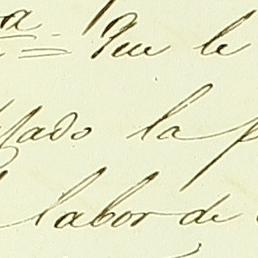 a = Que le
lado la p
labor de